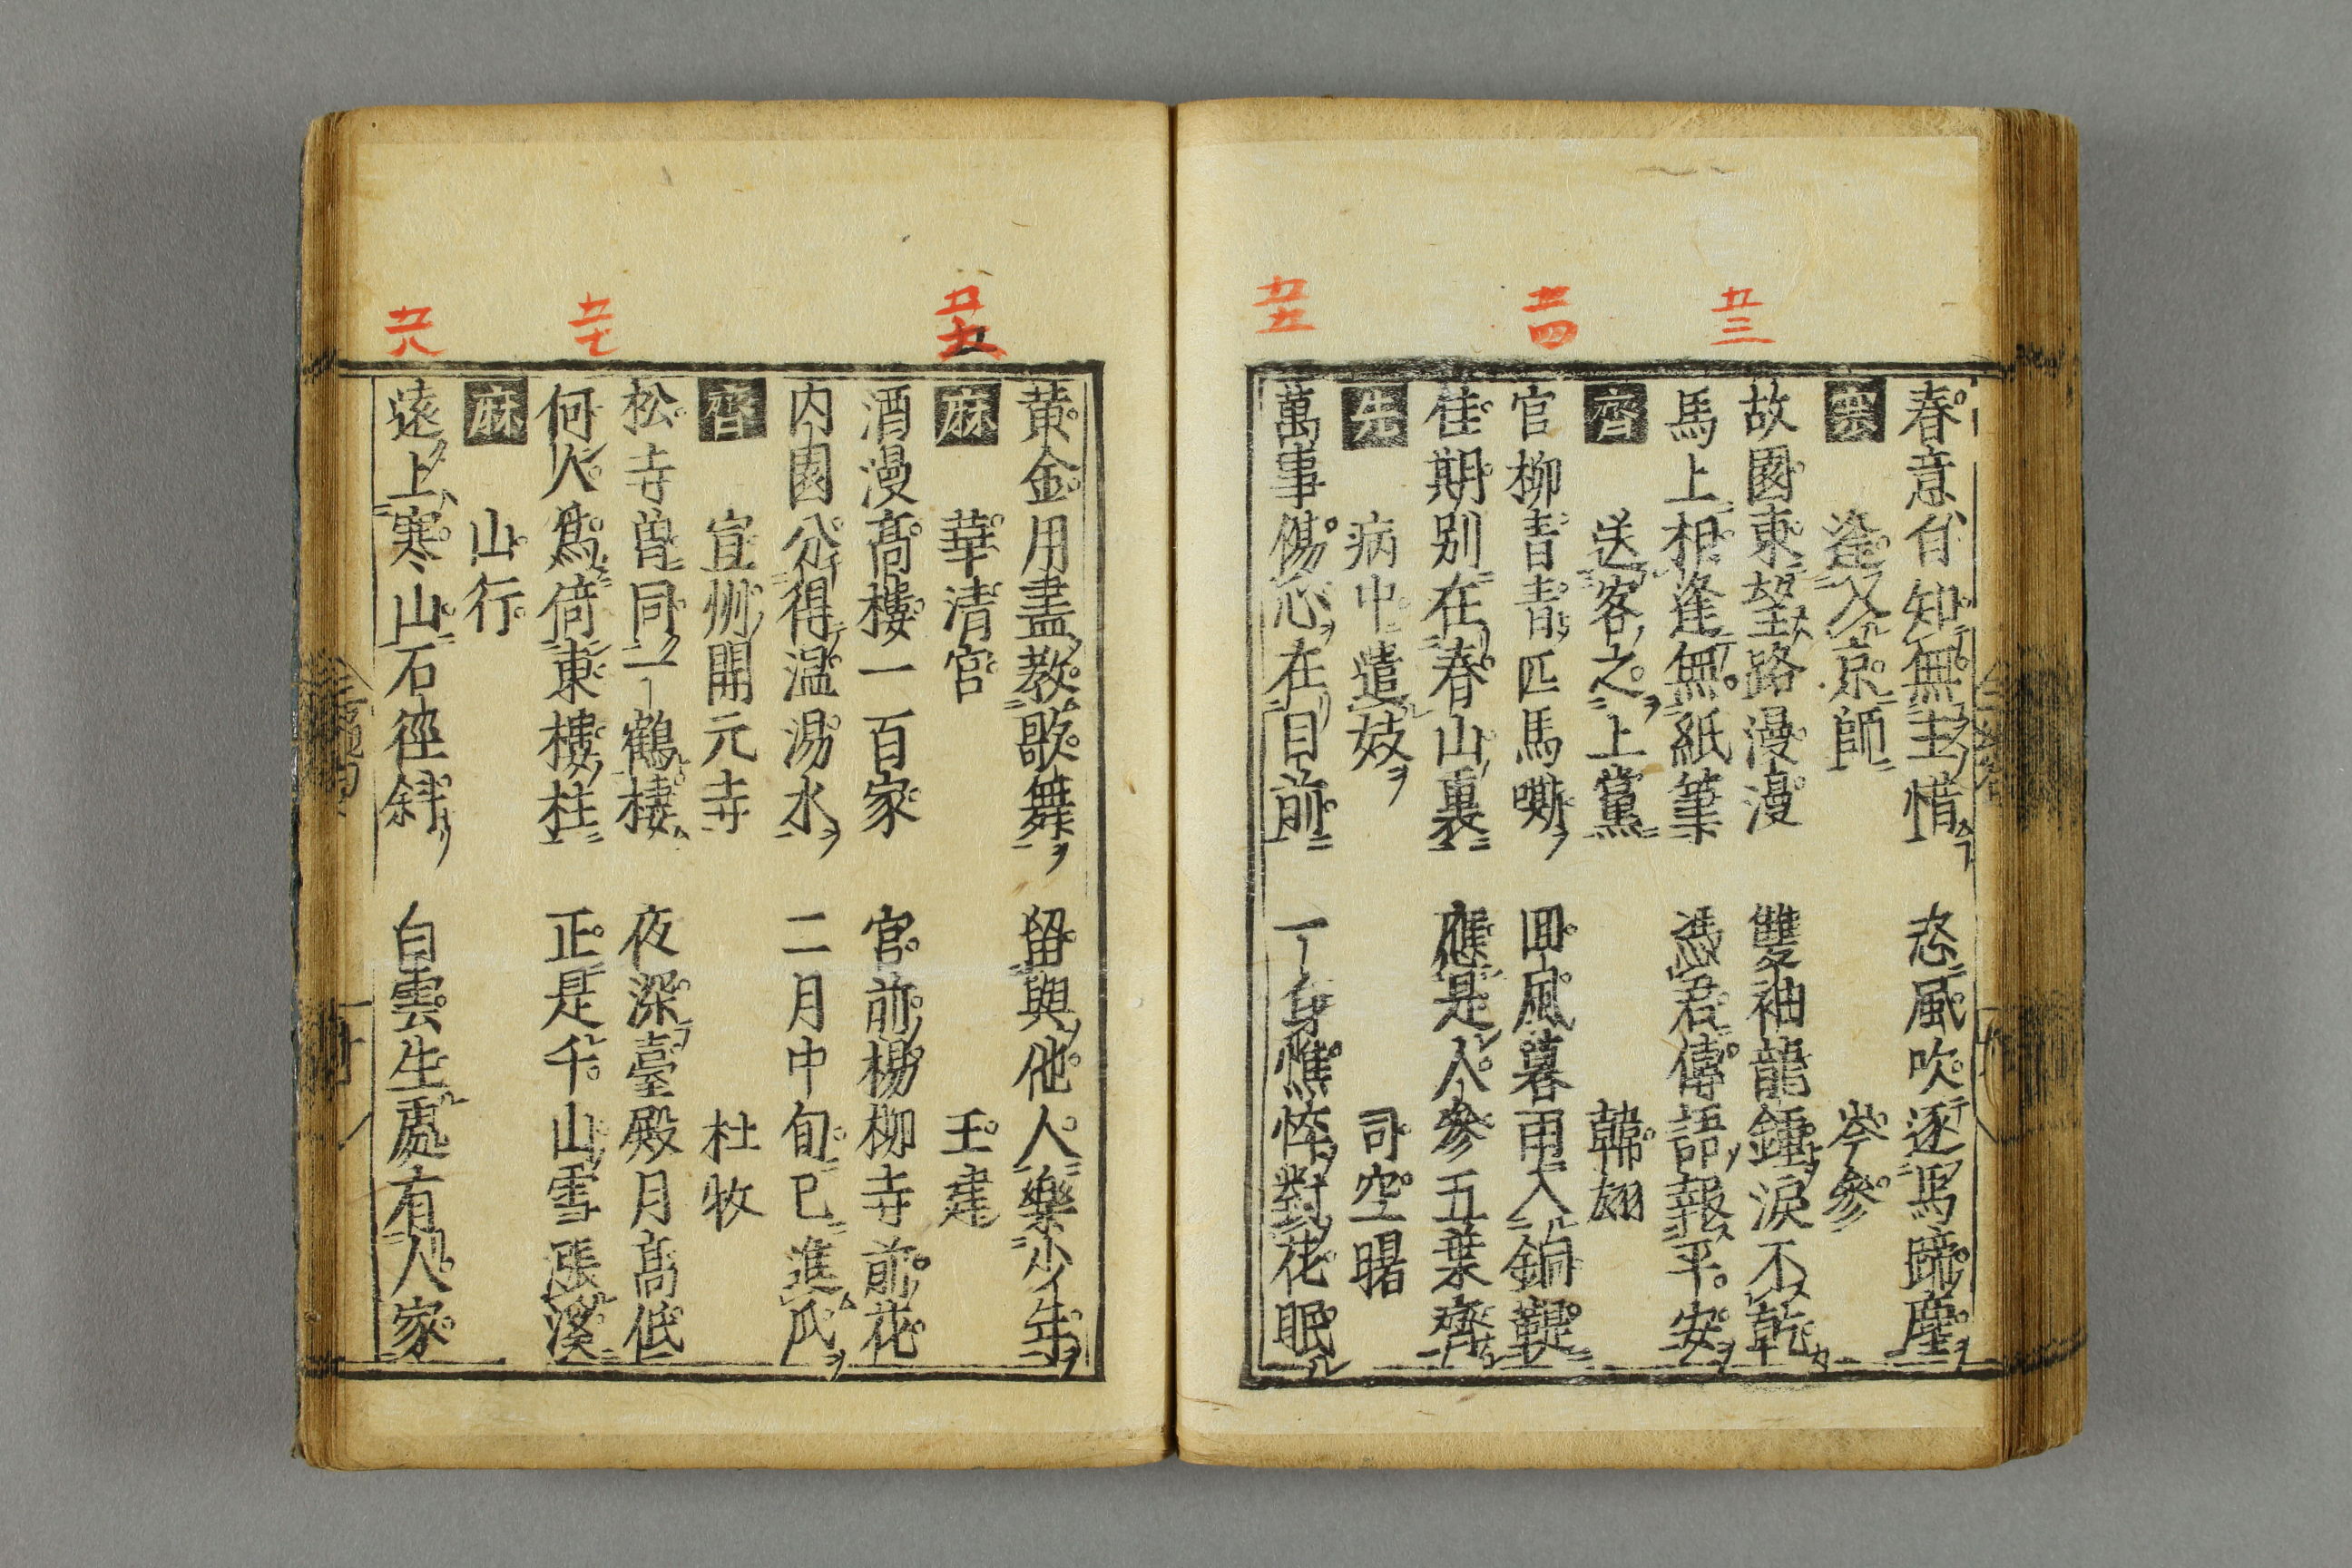 九三
九四
九五
春意自知無主惜 恣風吹逐馬蹄塵
寒 逢入京師 岑參
故園東望路漫漫 雙袖龍鍾淚不乾
馬上相逢無紙筆 馮君傳語報平安
齊 送客之上黨 韓翃
官柳青青匹馬嘶 回風暮雨入銅鞮
佳期別在春山裏 應是人參五葉齊
先 病中遣妓 司空曙
萬事傷心在目前 一身憔悴對花眠
九六
九七
九八
黃金用盡教歌舞 留與他人樂少年
麻 華清宮 王建
酒漫高樓一百家 宮前楊柳寺前花
内園分得温湯水 二月中旬已進瓜
齊 宣州開元寺 杜牧
松寺曽同一鶴棲 夜深臺殿月高低
何人爲倚東樓柱 正是千山雪漲溪
麻 山行
遠上寒山石徑斜 白雲生處有人家